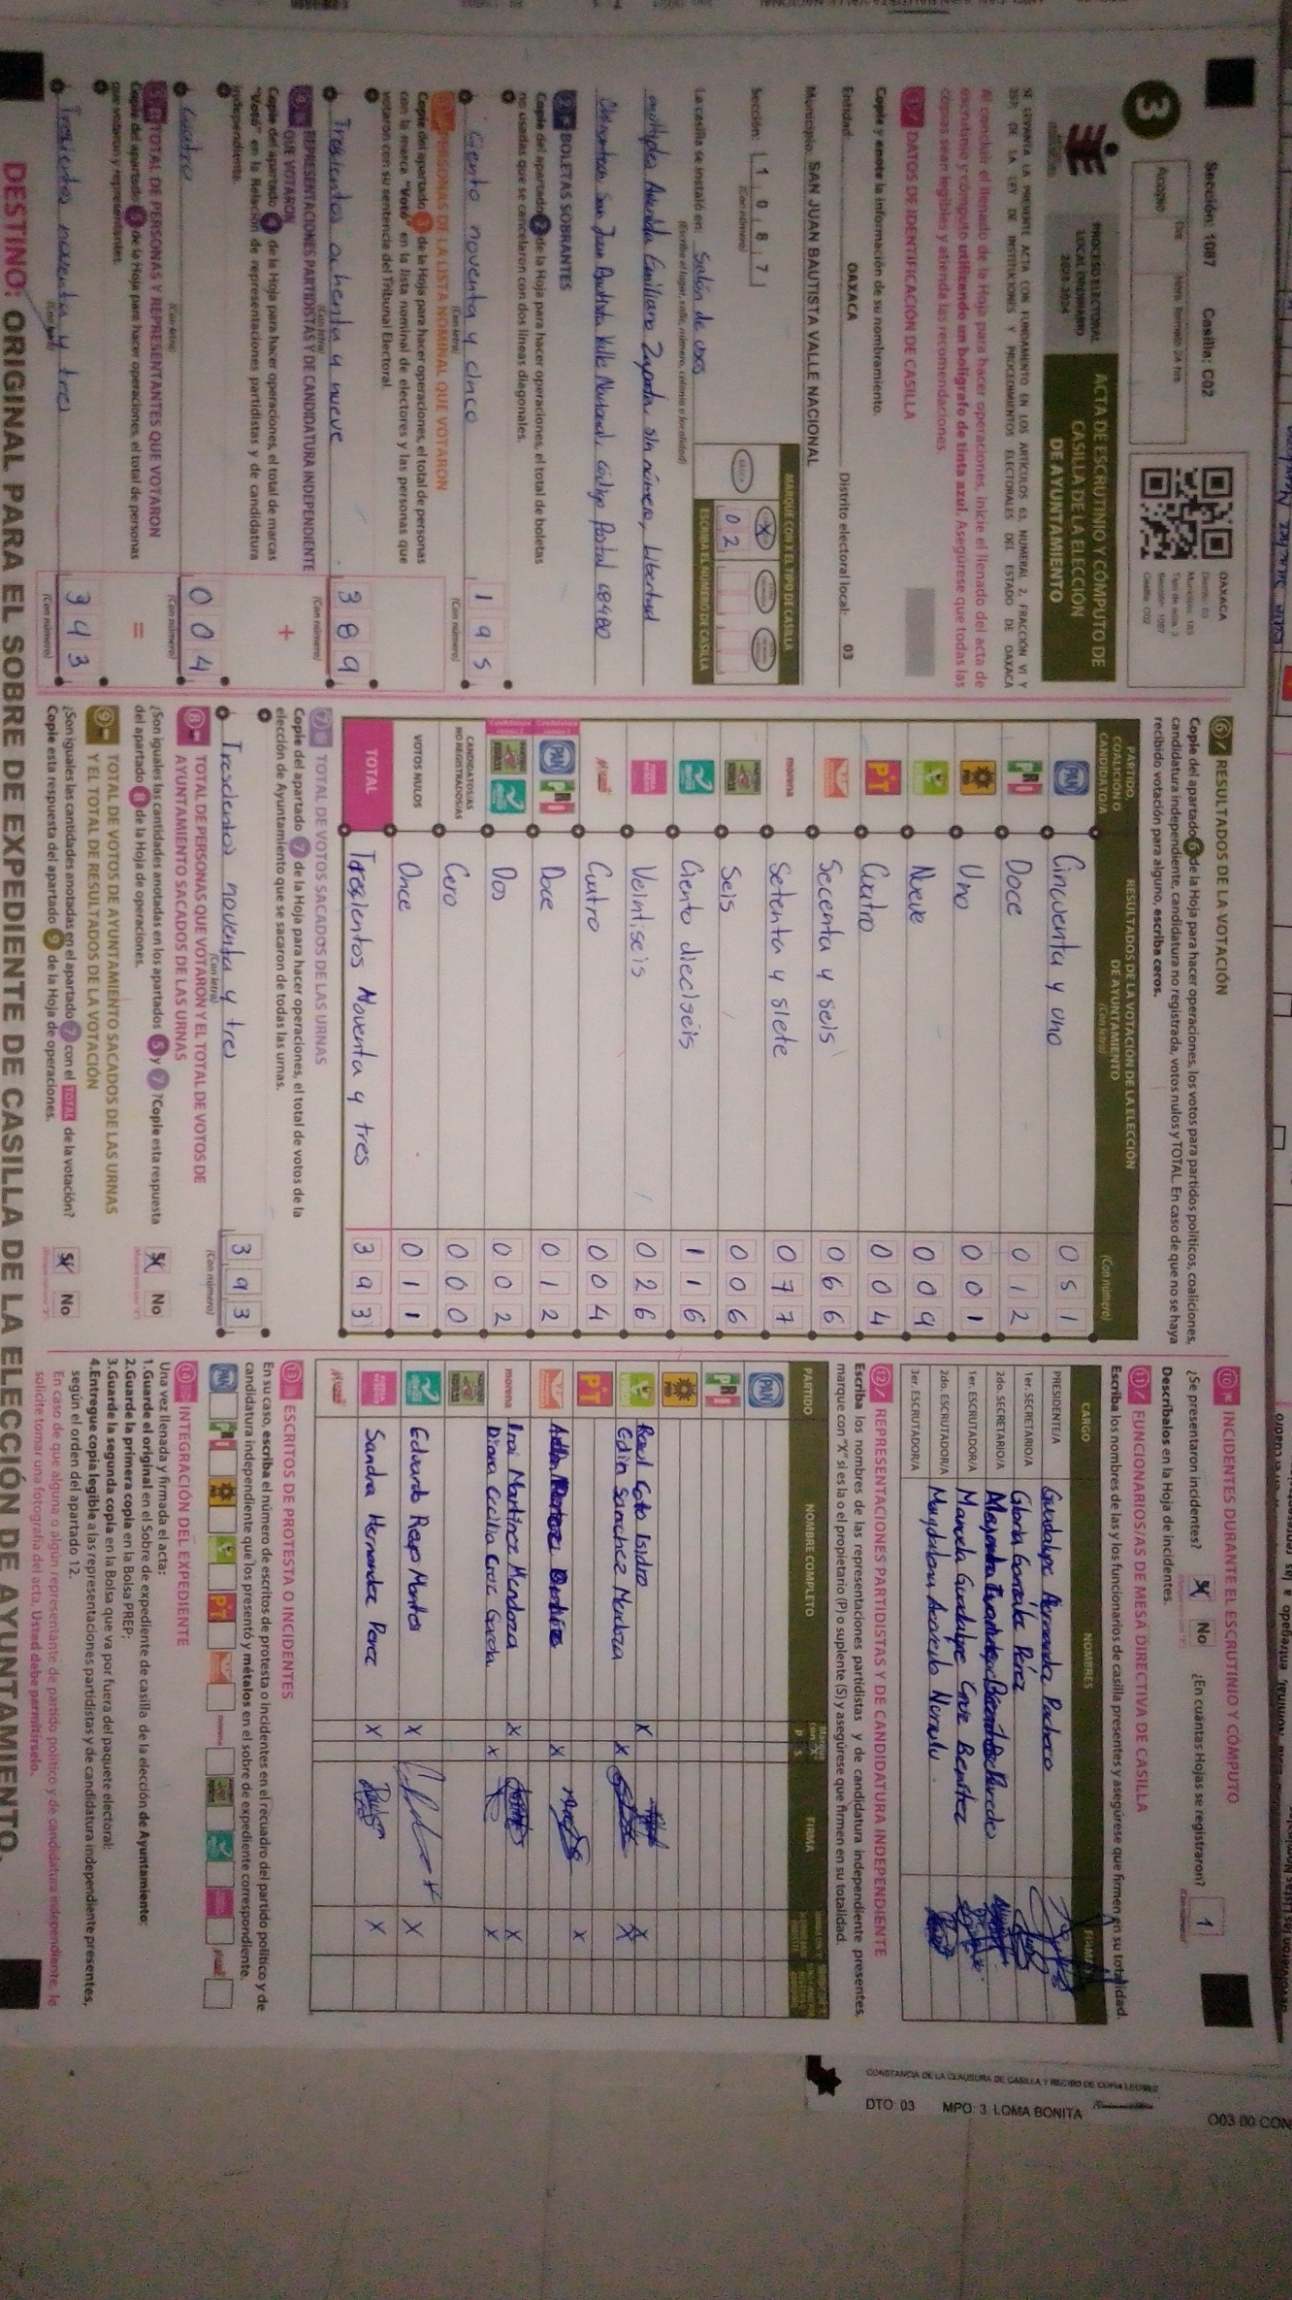 Sección: 1087 Casilla: C02
3
Acopio
Día Hora formato 24 hrs
PROCESO ELECTORAL
LOCAL ORDINARIO
2023-2024
ACTA DE ESCRUTINIO Y CÓMPUTO DE
CASILLA DE LA ELECCIÓN
DE AYUNTAMIENTO
OAXACA
Distrito: 03
Sección: 1087
Casilla: C02
SE LEVANTA LA PRESENTE ACTA CON FUNDAMENTO EN LOS ARTÍCULOS 63, NUMERAL 2, FRACCIÓN VI Y
DE LA LEY DE INSTITUCIONES Y PROCEDIMIENTOS ELECTORALES DEL ESTADO DE OAXACA
Al concluir el llenado de la Hoja para hacer operaciones, inicie el llenado del acta de
escrutinio y cómputo utilizando un bolígrafo de tinta azul. Asegúrese que todas las
copias sean legibles y atienda las recomendaciones.
1 DATOS DE IDENTIFICACIÓN DE CASILLA
Copie y anote la información de su nombramiento.
Entidad: OAXACA Distrito electoral local: 03
Municipio: SAN JUAN BAUTISTA VALLE NACIONAL
Sección: 1 0 8 7
(Con número)
MARQUE CON X EL TIPO DE CASILLA
X
ESCRIBA EL NÚMERO DE CASILLA
0 2
La casilla se instaló en: Salón de usos
(Escriba el lugar, calle, número, colonia o localidad)
multiples Avenida Emiliano Zapata, sin número, Libertad
San Juan Bautista Valle Nacional, código Postal 68480
2 BOLETAS SOBRANTES
Copie del apartado 2 de la Hoja para hacer operaciones, el total de boletas
no usadas que se cancelaron con dos líneas diagonales.
Ciento noventa y cinco 1 9 5
(Con letra) (Con número)
3 PERSONAS DE LA LISTA NOMINAL QUE VOTARON
Copie del apartado 3 de la Hoja para hacer operaciones, el total de personas
con la marca "Votó" en la lista nominal de electores y las personas que
votaron con su sentencia del Tribunal Electoral.
Trescientos ochenta y nueve 3 8 9
(Con letra) (Con número)
4 REPRESENTACIONES PARTIDISTAS Y DE CANDIDATURA INDEPENDIENTE
QUE VOTARON
+
Copie del apartado 4 de la Hoja para hacer operaciones, el total de marcas
"Votó" en la Relación de representaciones partidistas y de candidatura
independiente.
Cuatro 0 0 4
(Con letra) (Con número)
5 TOTAL DE PERSONAS Y REPRESENTANTES QUE VOTARON
=
Copie del apartado 5 de la Hoja para hacer operaciones, el total de personas
que votaron y representantes.
Trescientos noventa y tres 3 9 3
(Con letra) (Con número)
6 RESULTADOS DE LA VOTACIÓN
Copie del apartado 6 de la Hoja para hacer operaciones, los votos para partidos políticos, coaliciones,
candidatura independiente, candidatura no registrada, votos nulos y TOTAL. En caso de que no se haya
recibido votación para alguno, escriba ceros.
PARTIDO,
COALICIÓN O
CANDIDATO/A
RESULTADOS DE LA VOTACIÓN DE LA ELECCIÓN
DE AYUNTAMIENTO
(Con letra) (Con número)
PAN Cincuenta y uno 0 5 1
PRI Doce 0 1 2
PRD Uno 0 0 1
VERDE Nueve 0 0 9
PT Cuatro 0 0 4
Secenta y seis 0 6 6
morena Setenta y siete 0 7 7
Seis 0 0 6
Ciento dieciseis 1 1 6
Veintiseis 0 2 6
Cuatro 0 0 4
PAN PRI Doce 0 1 2
Dos 0 0 2
CANDIDATOS/AS
NO REGISTRADOS/AS
Cero 0 0 0
VOTOS NULOS Once 0 1 1
TOTAL Trescientos Noventa y tres 3 9 3
7 TOTAL DE VOTOS SACADOS DE LAS URNAS
Copie del apartado 7 de la Hoja para hacer operaciones, el total de votos de la
elección de Ayuntamiento que se sacaron de todas las urnas.
Trescientos noventa y tres 3 9 3
(Con letra) (Con número)
8 TOTAL DE PERSONAS QUE VOTARON Y EL TOTAL DE VOTOS DE
AYUNTAMIENTO SACADOS DE LAS URNAS
¿Son iguales las cantidades anotadas en los apartados 5 y 7? Copie esta respuesta
del apartado 8 de la Hoja de operaciones.
Sí No
9 TOTAL DE VOTOS DE AYUNTAMIENTO SACADOS DE LAS URNAS
Y EL TOTAL DE RESULTADOS DE LA VOTACIÓN
¿Son iguales las cantidades anotadas en el apartado 7 con el TOTAL de la votación?
Copie esta respuesta del apartado 9 de la Hoja de operaciones.
Sí No
10 INCIDENTES DURANTE EL ESCRUTINIO Y CÓMPUTO
¿Se presentaron incidentes? Sí No ¿En cuántas Hojas se registraron? 1
Descríbalos en la Hoja de incidentes.
11 FUNCIONARIOS/AS DE MESA DIRECTIVA DE CASILLA
Escriba los nombres de las y los funcionarios de casilla presentes y asegúrese que firmen en su totalidad.
CARGO NOMBRES FIRMA
PRESIDENTE/A Guadalupe Hernandez Pacheco
1er. SECRETARIO/A Gloria González Pérez
2do. SECRETARIO/A
1er. ESCRUTADOR/A Manuela Guadalupe Cruz Benitez
2do. ESCRUTADOR/A Magdalena Acevedo
3er. ESCRUTADOR/A
12 REPRESENTACIONES PARTIDISTAS Y DE CANDIDATURA INDEPENDIENTE
Escriba los nombres de las representaciones partidistas y de candidatura independiente presentes,
marque con "X" si es la o el propietario (P) o suplente (S) y asegúrese que firmen en su totalidad.
PARTIDO NOMBRE COMPLETO P S FIRMA
PAN
PRI
PRD
VERDE Raul Coto Isidro X X
Edin Sanchez Mendoza X X
PT X
X
morena Irai Martinez Mendoza X X
Diana Cecilia Cruz Garcia X X
Eduardo Reap Montes X X
Sandra Hernandez Perez X X
13 ESCRITOS DE PROTESTA O INCIDENTES
En su caso, escriba el número de escritos de protesta o incidentes en el recuadro del partido político y de
candidatura independiente que los presentó y métalos en el sobre de expediente correspondiente.
14 INTEGRACIÓN DEL EXPEDIENTE
Una vez llenada y firmada el acta:
1.Guarde el original en el Sobre de expediente de casilla de la elección de Ayuntamiento;
2.Guarde la primera copia en la Bolsa PREP;
3.Guarde la segunda copia en la Bolsa que va por fuera del paquete electoral;
4.Entregue copia legible a las representaciones partidistas y de candidatura independiente presentes,
según el orden del apartado 12.
En caso de que alguna o algún representante de partido político y de candidatura independiente, le
solicite tomar una fotografía del acta, Usted debe permitírselo.
DESTINO: ORIGINAL PARA EL SOBRE DE EXPEDIENTE DE CASILLA DE LA ELECCIÓN DE AYUNTAMIENTO.
CONSTANCIA DE LA CLAUSURA DE CASILLA Y RECIBO DE COPIA LEGIBLE
DTO: 03 MPO: 3 LOMA BONITA